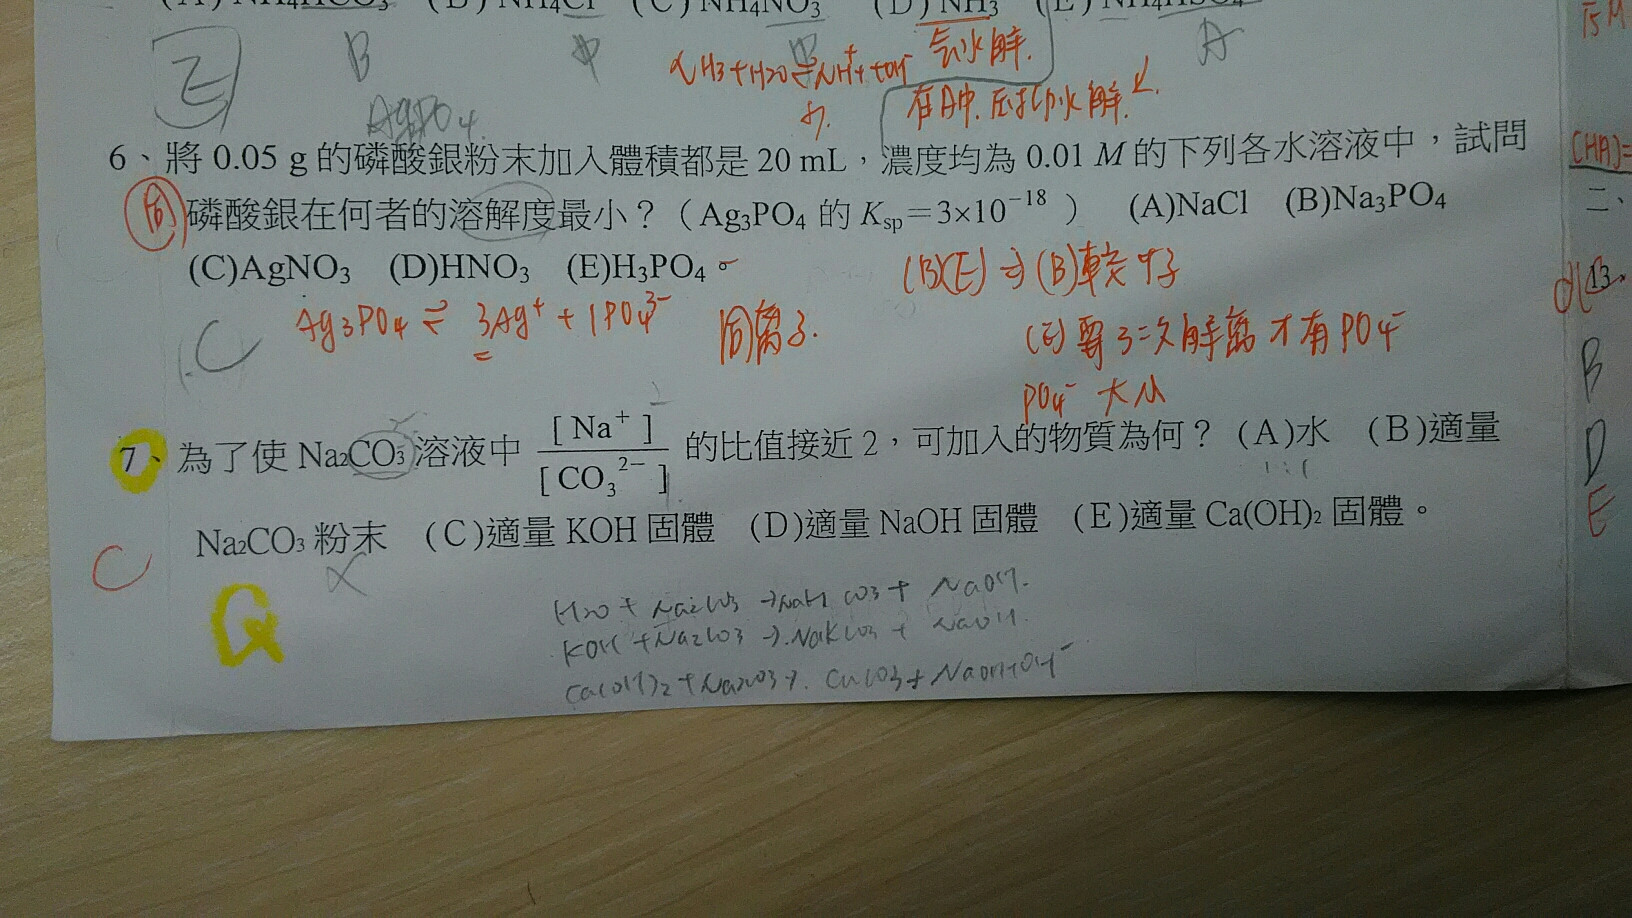 (A) NH4HCO3 (B) NH4Cl (C) NH4NO3 (D) NH3 (E) NH4HSO4
B 中 中 A
E
NH3+H2O⇌NH4⁺+OH⁻ 氨水解.
AgPO4.
6、將 0.05 g 的磷酸銀粉末加入體積都是 20 mL，濃度均為 0.01 M 的下列各水溶液中，試問
同 磷酸銀在何者的溶解度最小？（Ag₃PO₄ 的 Ksp＝3×10⁻¹⁸ ） (A)NaCl (B)Na₃PO₄
(C)AgNO₃ (D)HNO₃ (E)H₃PO₄。
(B)(E) ⇒ (B)較好
C
Ag3PO4 ⇌ 3Ag⁺ + 1PO4³⁻ 同離子.
(E) 要3次解離才有PO4⁻
PO4⁻ 大小
7、為了使 Na₂CO₃ 溶液中 [Na⁺] / [CO₃²⁻] 的比值接近 2，可加入的物質為何？ (A)水 (B)適量
1:1
Na₂CO₃ 粉末 (C)適量 KOH 固體 (D)適量 NaOH 固體 (E)適量 Ca(OH)₂ 固體。
C
Q
H2O + Na2CO3 → NaHCO3 + NaOH.
KOH + Na2CO3 → NaKCO3 + NaOH.
Ca(OH)2 + Na2CO3 → CaCO3 + NaOH+OH⁻
[HA]=
二、
13、
B
D
E